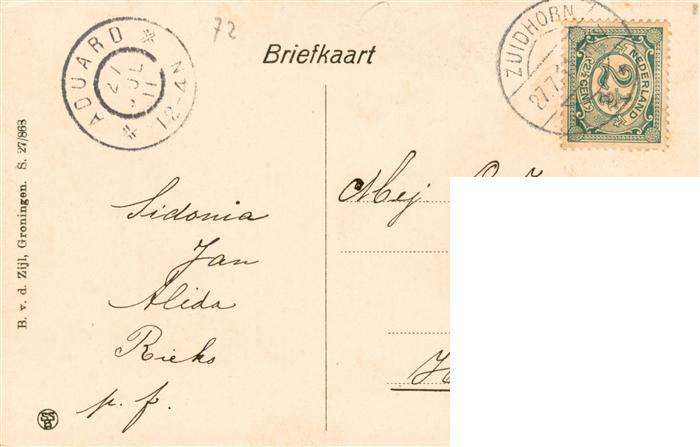 72
ADUARD
JUL
11
12-4N
Briefkaart
ZUIDHORN
27.7
NEDERLAND
2½
CENT
B. v. d. Zijl, Groningen. S. 27/863
Sidonia
Jan
Alida
Rieks
p. f.
Mej